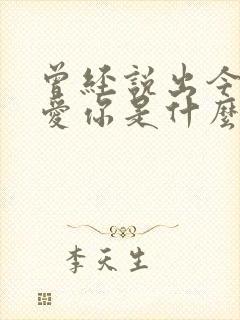 曾经說出今
愛你是什麼
李天生